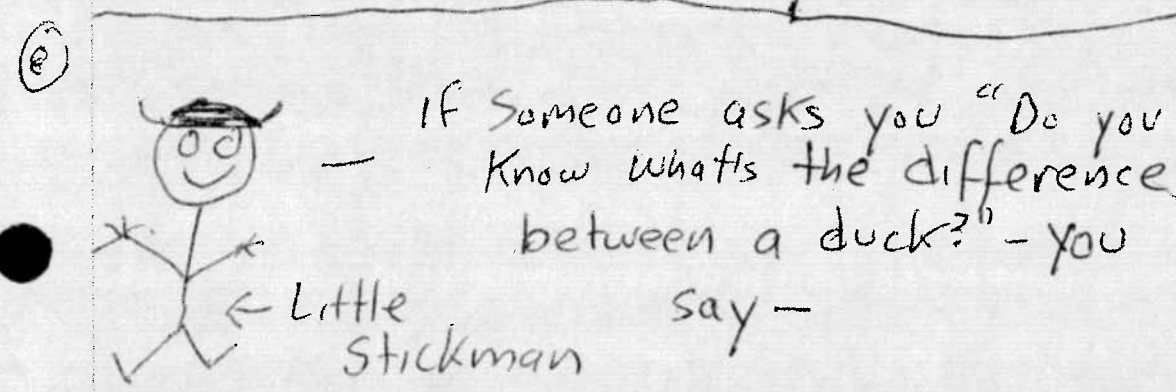 If Someone asks you "Do you
Know what's the difference
between a duck?" - you
say -
← Little
Stickman